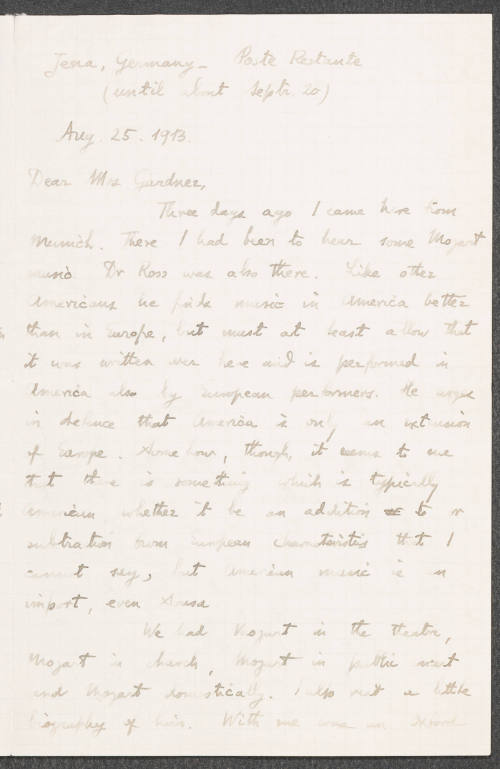 Jena, Germany - Poste Restante
(until about Septr. 20)
Aug. 25. 1913.
Dear Mrs Gardner,
Three days ago I came here from
Munich. There I had been to hear some Mozart
music. Dr Ross was also there. Like other
Americans he finds music in America better
than in Europe, but must at least allow that
it was written over here and is performed in
America also by European performers. He urges
in defence that America is only an extension
of Europe. Somehow, though, it seems to me
that there is something which is typically
American, whether it be an addition to or
subtraction from European characteristics that I
cannot say, but American music is an
import, even Sousa
We had Mozart in the theatre,
Mozart in church, Mozart in public
and Mozart domestically. I also read a little
biography of him. With me was an